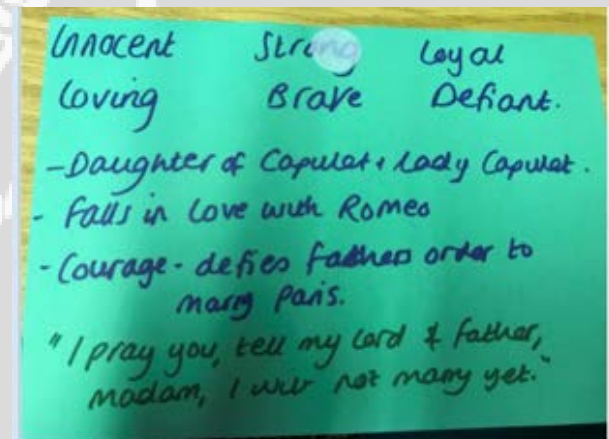 Innocent Strong Loyal
Loving Brave Defiant.
- Daughter of Capulet + Lady Capulet.
- Falls in Love with Romeo
- Courage - defies fathers order to
marry Paris.
"I pray you, tell my Lord & father,
madam, I will not marry yet."